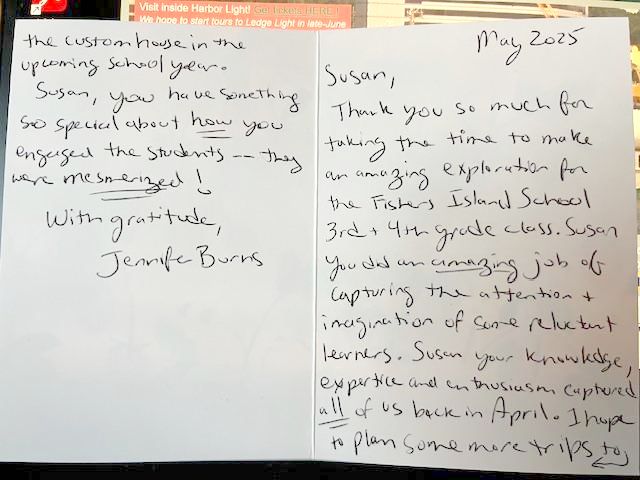 Visit inside Harbor Light! Get Tickets HERE!
We hope to start tours to Ledge Light in late-June
May 2025
Susan,
Thank you so much for
taking the time to make
an amazing exploration for
the Fishers Island School
3rd + 4th grade class. Susan
you did an amazing job of
capturing the attention +
imagination of some reluctant
learners. Susan your knowledge,
expertice and enthusiasm captured
all of us back in April. I hope
to plan some more trips to
the custom house in the
upcoming school year.
Susan, you have something
so special about how you
engaged the students -- they
were mesmerized!
With gratitude,
Jennifer Burns